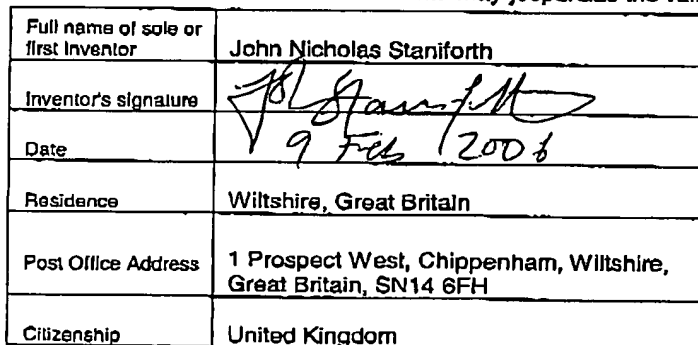 jeopardize the
Full name of sole or
first inventor
John Nicholas Staniforth
Inventor's signature
Date
9 Feb 2006
Residence
Wiltshire, Great Britain
Post Office Address
1 Prospect West, Chippenham, Wiltshire,
Great Britain, SN14 6FH
Citizenship
United Kingdom